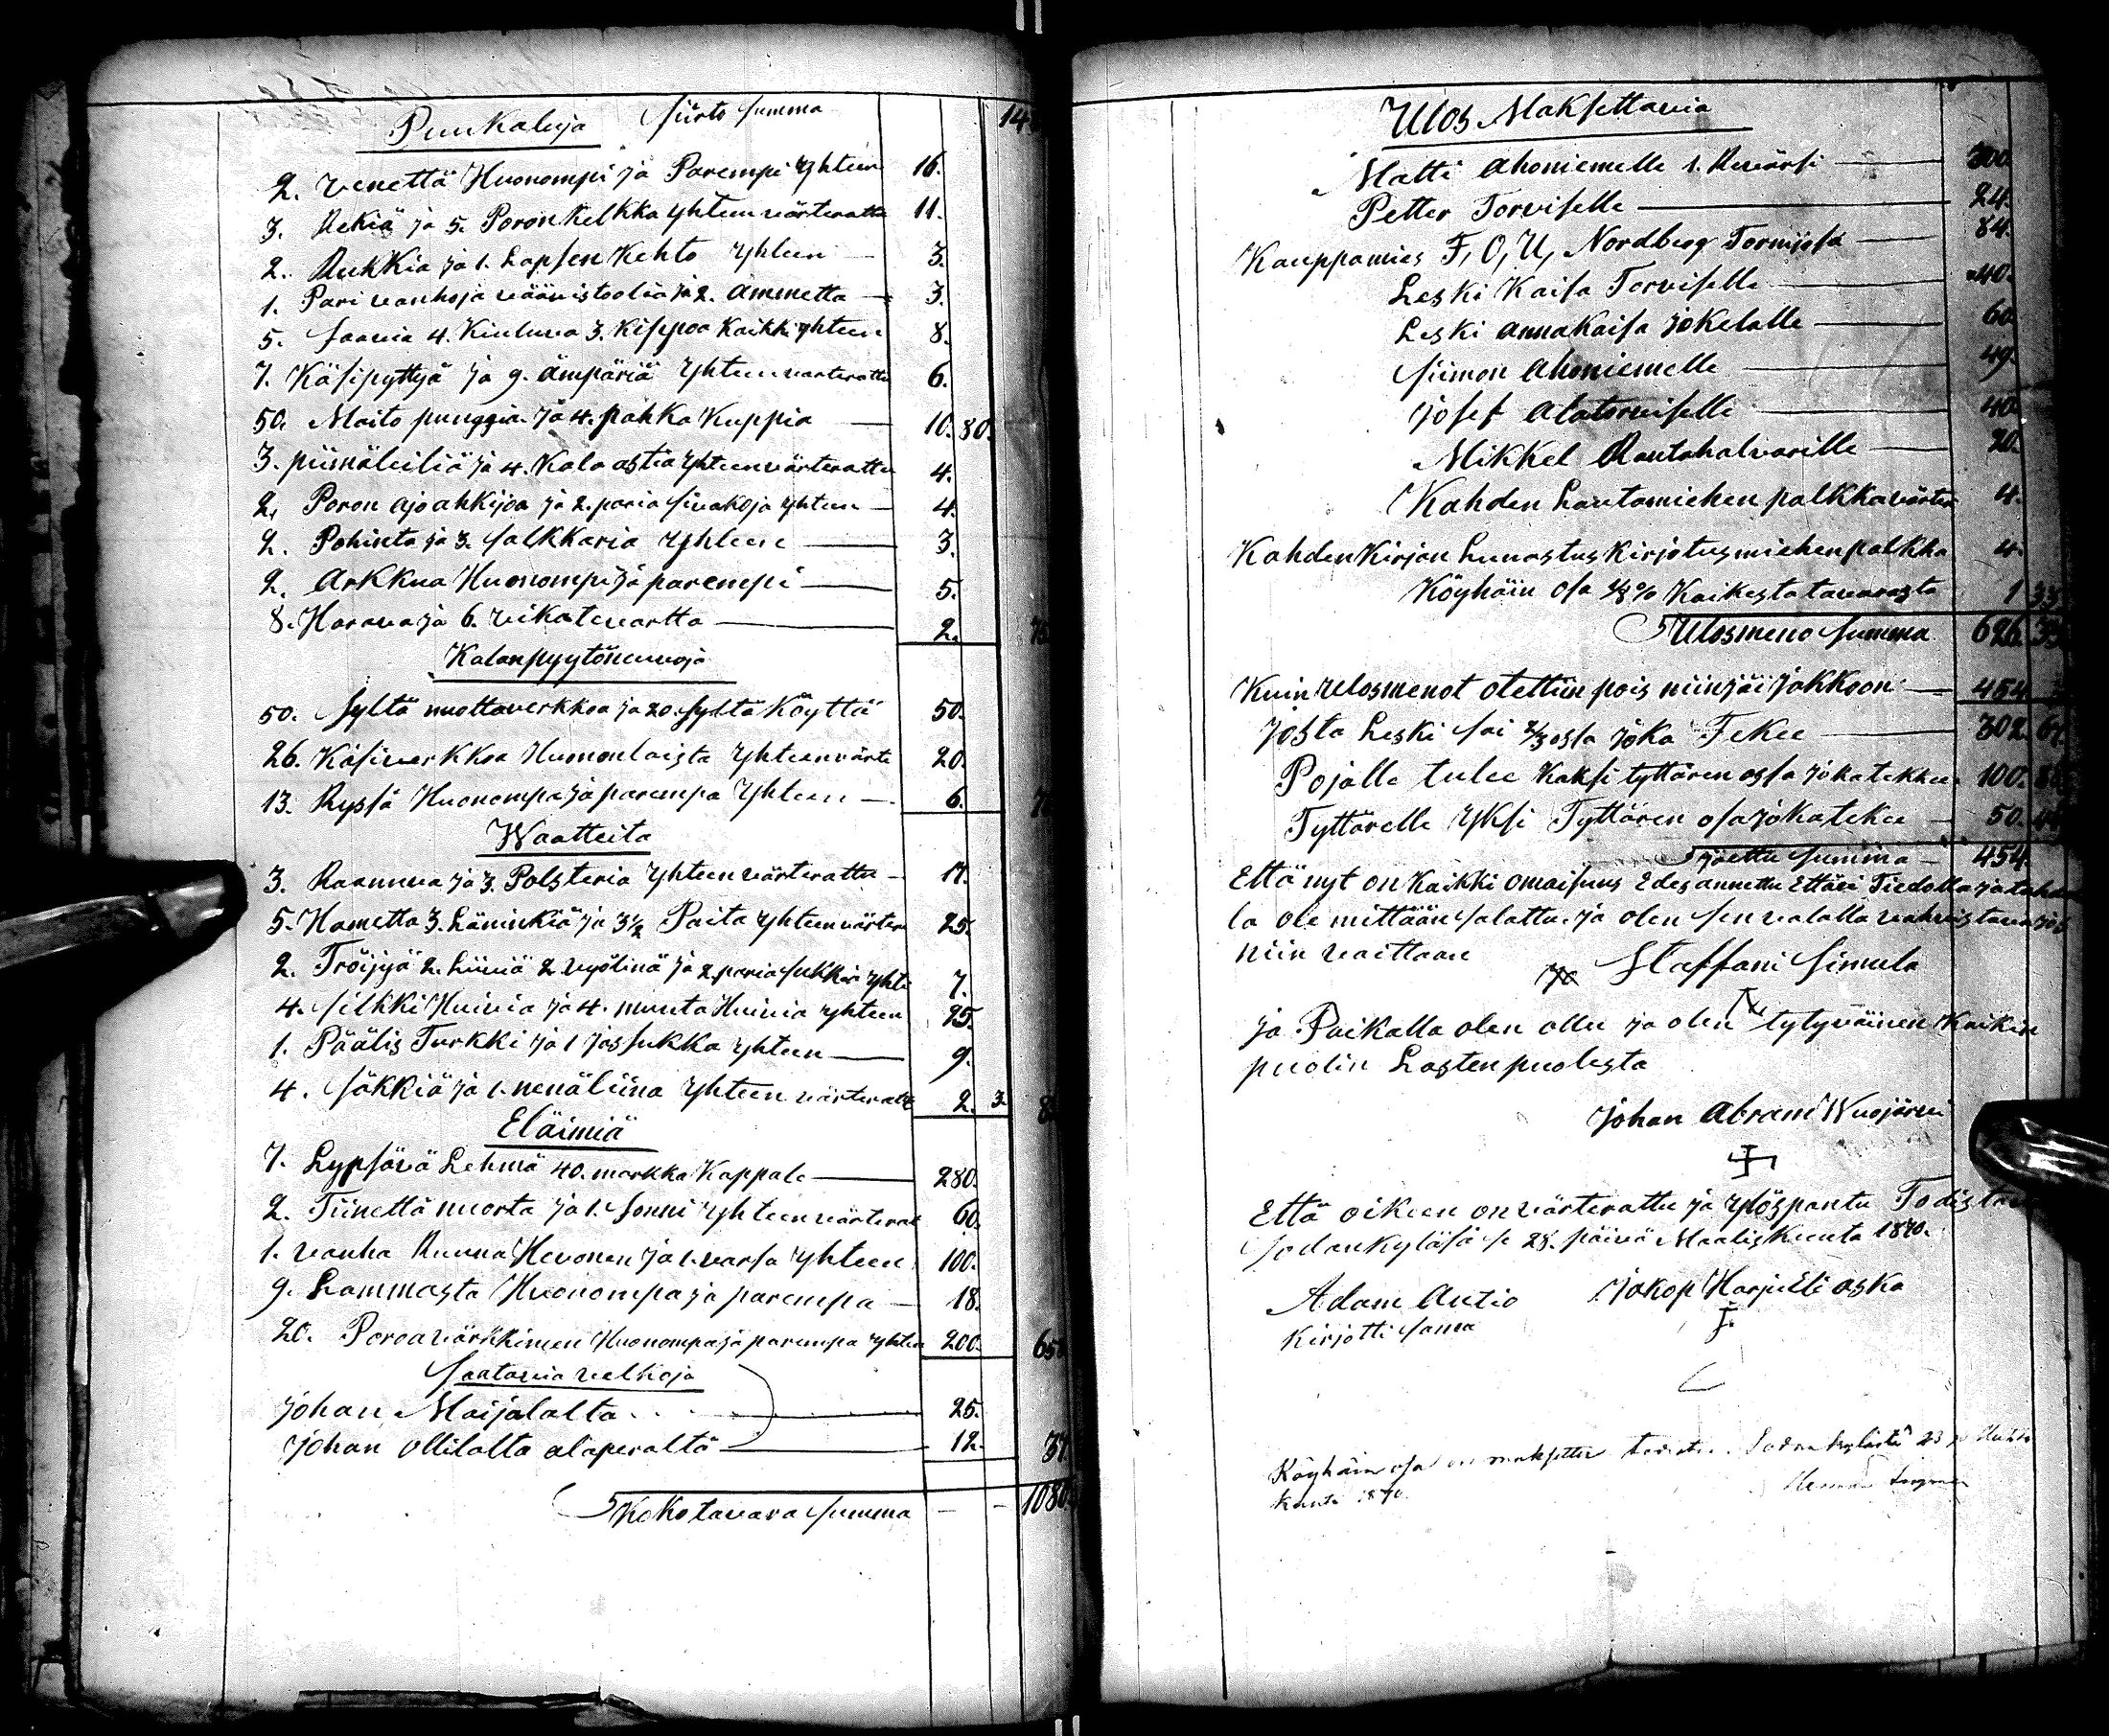 Puukaluja Siirto Summa 14
2. venettä Huonompi ja Parempi Yhteen 16.
3. Rekiä ja 5. Poron Kelkka Yhteen värterattu 11.
2. Rukkia ja 1. Lapsen Kehto Yhteen 3.
1. Pari vanhoja väävistoolia ja 2. ammetta 3.
5. Saavia 4. Kiuluva 3. Kippoa Kaikki Yhteen 8.
7. Käsipyttyä ja 9. ämpäriä Yhteen värterattu 6.
50. Maito punggia ja 4. pahka Kuppia 10. 80.
3. piimäleiliä ja 4. Kala astia Yhteen värterattu 4.
2, Poron ajo ahkijoa ja 2. paria Sivakoja Yhteen 4.
2. Pohinta ja 3. Salkkaria Yhteen 3.
2. Arkkua Huonompi ja parempi 5.
8. Harava ja 6. vikatevartta 2.
Kalanpyytöneuvoja
50. Syltä nuottaverkkoa ja 20. Syltä Köyttä 50.
26. Käsiverkkoa Huononlaista Yhteen värte 20.
13. Ryssä Huonompa ja parempa Yhteen 6.
Waatteita
3. Raanuva ja 3. Polsteria Yhteen värterattu 17.
5. Hametta 3. Läninkiä ja 3½ Paita Yhteen värter 25.
2. Tröijyä 2. Liiviä 2 vyölinä ja 2 paria Sukkia Yhte 7.
4. Silkki Huivia ja 4. muuta Huivia Yhteen 25.
1. Päälis Turkki ja 1 jassukka Yhteen 9.
4. Säkkiä ja 1. nenäliina Yhteen värteratt 2. 3.
Eläimiä
7. Lypsävä Lehmä 40. markka Kappale 280.
2. Tiinettä nuorta ja 1. Sonni Yhteen värterat 60.
1. vanha Ruuna Hevonen ja 1. varsa Yhteen 100.
9. Lammasta Huonompa ja parempa 18.
20. Poroa värkkinen Huonompa ja parempa Yhteen 200. 658
Saatavia velkoja
Johan Maijalalta 25.
Johan Ollilalta alaperältä 12. 37.
Koko tavara Summa 1080
Ulos Maksettavia
Matti Ahoniemelle 1. Reværsi 300.
Petter Torviselle 24.
Kauppamies F, O, U, Nordberg Torniossa 84.
Leski Kaisa Torviselle 40.
Leski Anna Kaisa Jokelalle 60.
Siimon Ahoniemelle 49.
Josef Alatorviselle 40.
Mikkel Rautahalvarille 20.
Kahden Lautamiehen palkka värter 4.
Kahden Kirjan Lunastus Kirjotusmiehen palkka 4.
Köyhäin osa ⅛% Kaikesta tavarasta 1 33
Ulosmeno Summa 626. 33
Kuin Ulosmenot otettiin pois niin jäi jakkoon 454
Josta Leski Sai ⅔ ossa joka Tekee 302. 67
Pojalle tulee Kaksi tyttären ossa joka tekkee 100.
Tyttärelle Yksi Tyttären osa joka tekee 50.
jaettu Summa 454.
Että nyt on Kaikki omaisuus Edes annettu Ettäei Tiedolla ja tahdo
la ole mittään Salattu. ja olen Sen valalla vahvistava jos
niin vaittaan
Staffani Simula
ja Paikalla olen ollu ja olen tytyväinen Kaikin
puolin Lasten puolesta
Johan Abram Wuojärvi
Että oikeen on värterattu ja Ylöspantu Todistava
Sodankylässä se 28. päivä Maalis Kuuta 1870.
Adam Autio Jakop Harjuelioska
Kirjotti Sama
Köyhäin osa on maksettu Sodankylästä 23 p Huhti
kuuta 1870.